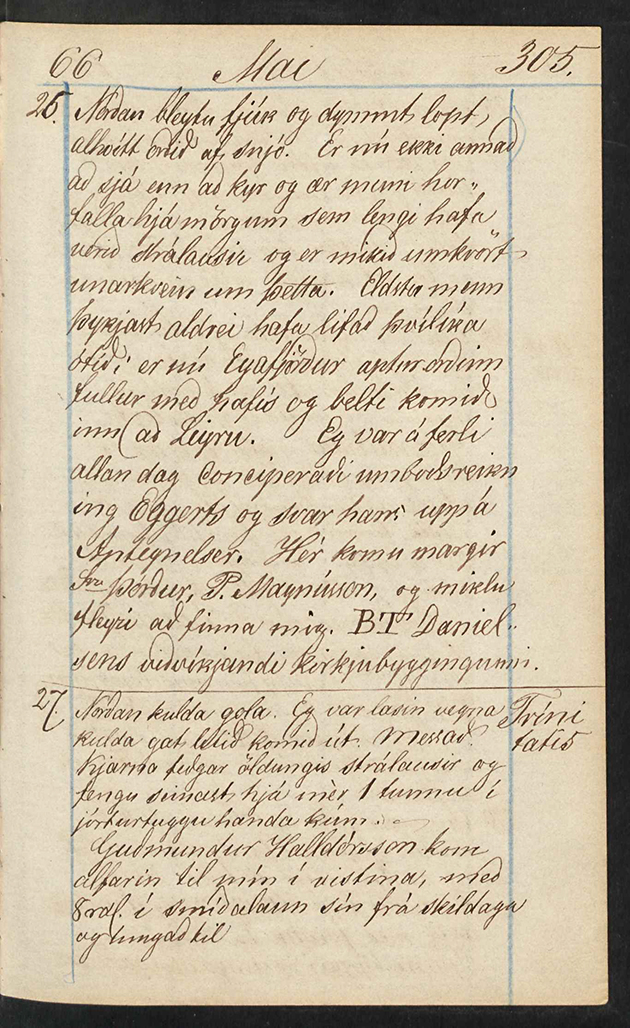 66 Mai 305.
26. Norðan bleytu fjúk og dymmt lopt,
alhvítt orðið af snjó. Er nú ekki annað
að sjá enn að kyr og ær muni hor„
falla hjá mörgum sem lengi hafa
verið strálausir og er mikið umkvört
unarkvein um þetta. Eldstu menn
þykjast aldrei hafa lifað þvílíka
ótíð; er nú Eyafjörður aptur orðinn
fullur með hafís og belti komið
inn að Leyru. Eg var á ferli
allan dag Conciperaði umboðsreikn
ing Eggerts og svar hans uppá
Antegnelser. Hér komu margir
Sra Þórður, P. Magnússon, og miklu
fleyri að finna mig. BT Daniel„
sens viðvíkjandi kirkjubyggingunni.
27. Norðan kulda gola. Eg var lasin vegna Tríni
kulda gat lítið komið út. Messað. tatis
Kjarna feðgar öldungis strálausir og
fengu seinast hjá mèr 1 tunnu í
jórturtuggu handa kúm.
Guðmundur Halldórsson kom
alfarin til mín í vistina, með
8 rdl. í smíðalaun sín frá skildaga
og hingað til